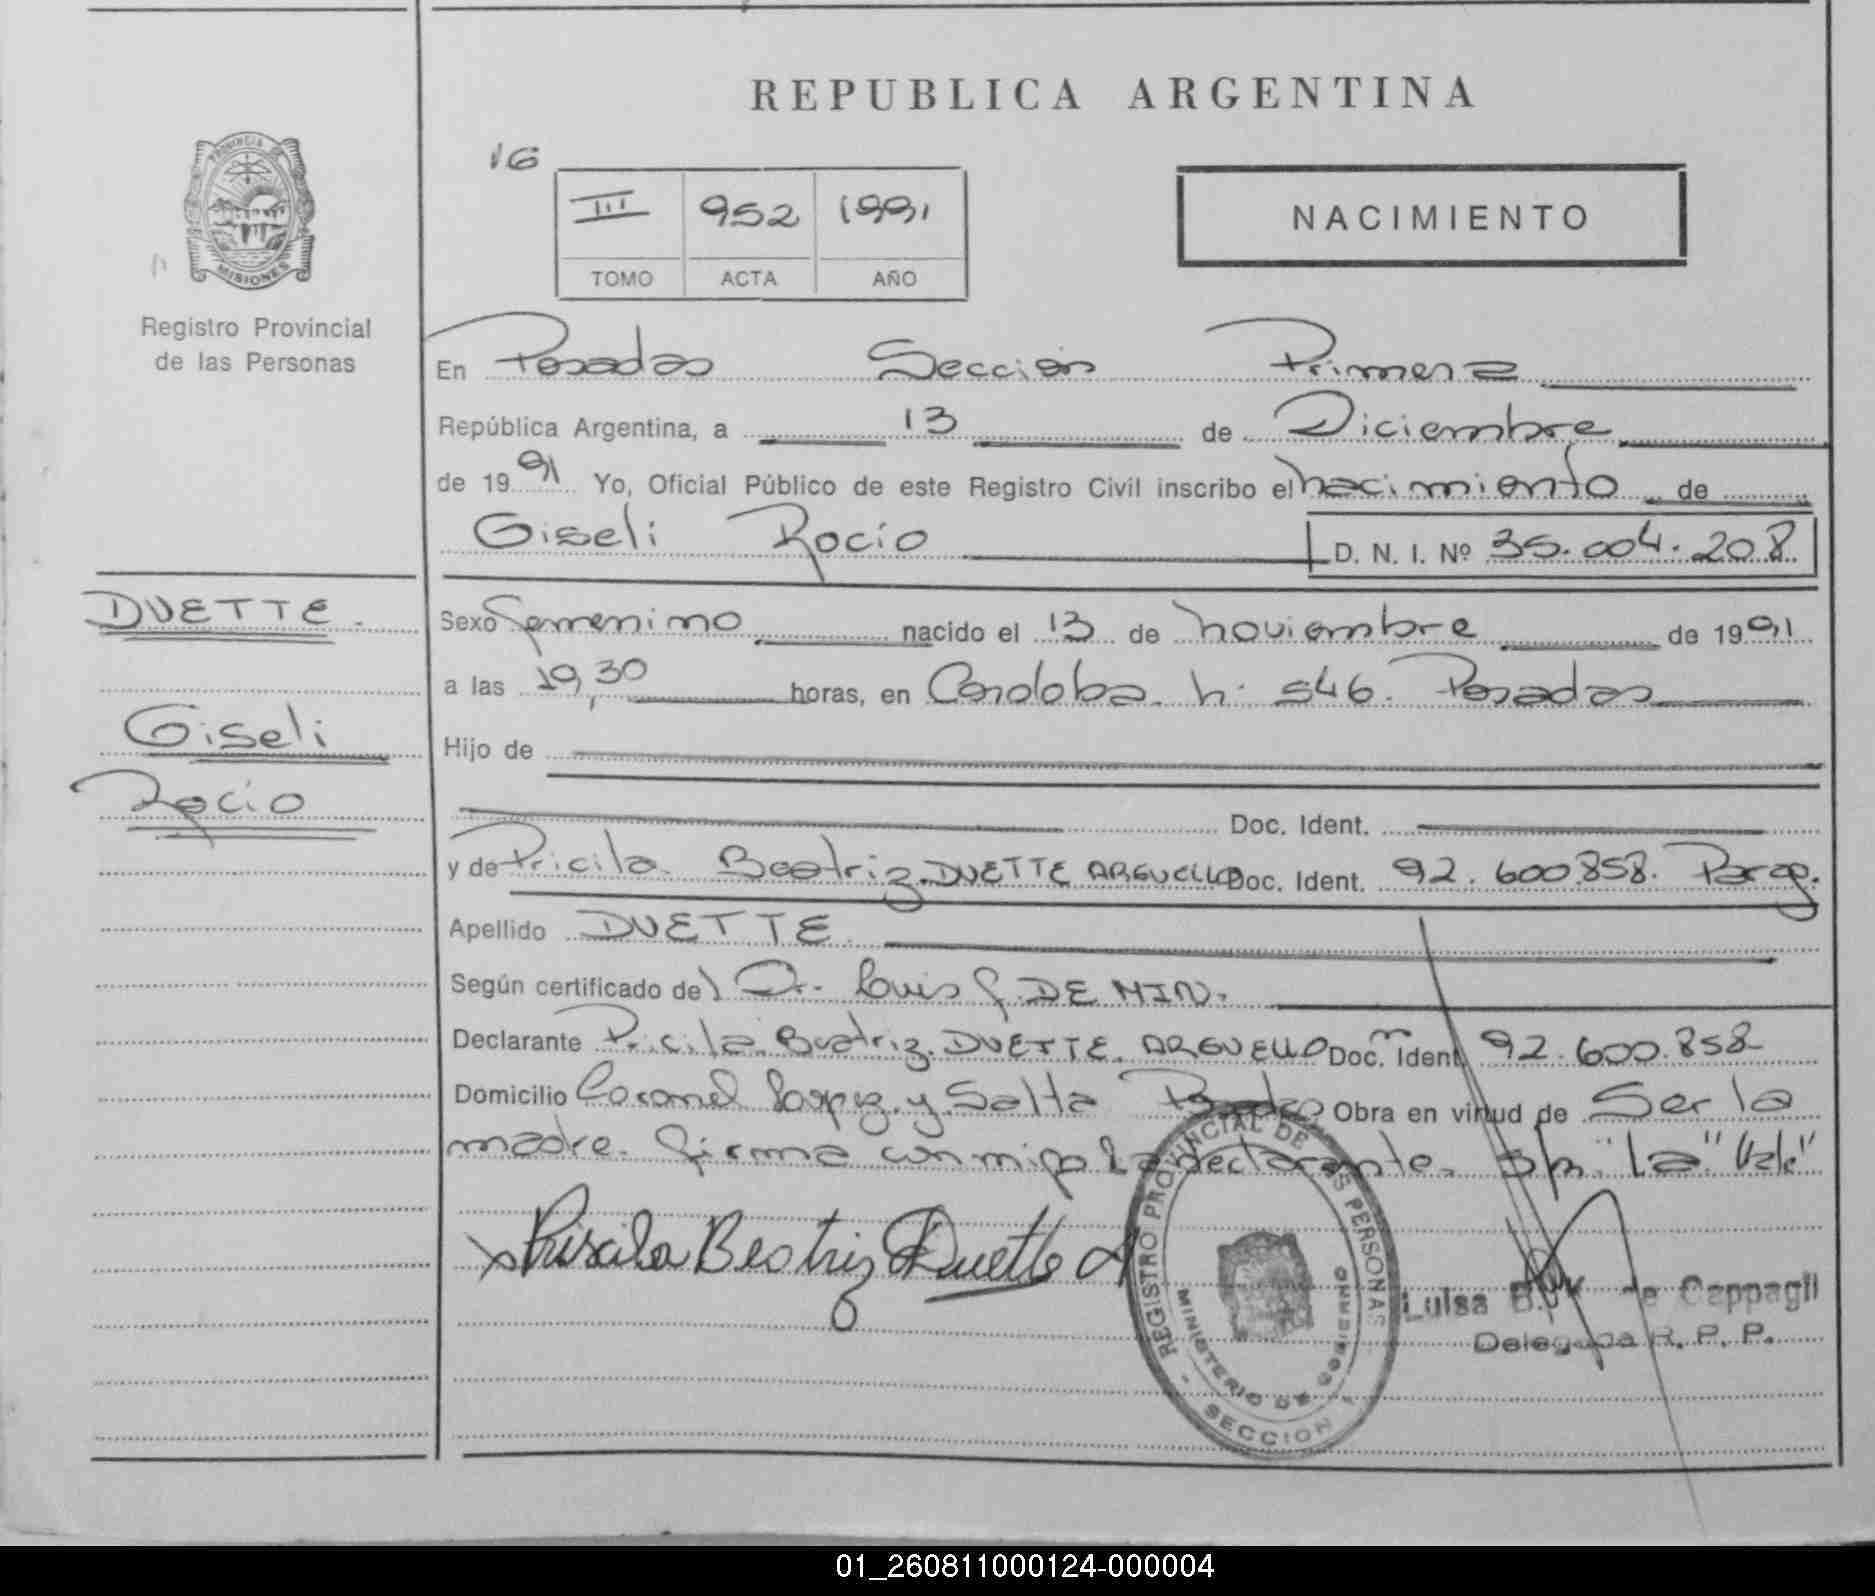 REPUBLICA ARGENTINA
PROVINCIA DE
MISIONES
Registro Provincial
de las Personas
16
III 952 1991
TOMO ACTA AÑO
NACIMIENTO
En Posadas Sección Primera
República Argentina, a 13 de Diciembre
de 1991 Yo, Oficial Público de este Registro Civil inscribo el nacimiento de
Giseli Rocío D. N. I. Nº 35.004.208
DUETTE.
Giseli
Rocio
Sexo femenino nacido el 13 de noviembre de 1991
a las 19,30 horas, en Cordoba n: 546. Posadas
Hijo de
Doc. Ident.
y de Pricila Beatriz DUETTE ARGUELLO Doc. Ident. 92.600.858. Parag.
Apellido DUETTE
Según certificado del Dr. Luis DE MIN.
Declarante Pricila Beatriz DUETTE ARGUELLO Doc. Ident. 92.600.858
Domicilio Coronel Lopez y Salta Posadas Obra en virtud de Ser la
madre. firma conmigo la declarante. s/r "la" Vale"
Priscila Beatriz Duette A
REGISTRO PROVINCIAL DE LAS PERSONAS
MINISTERIO DE GOBIERNO
SECCION 1
Luisa B. de Cappagli
Delegada R. P. P.
01_260811000124-000004